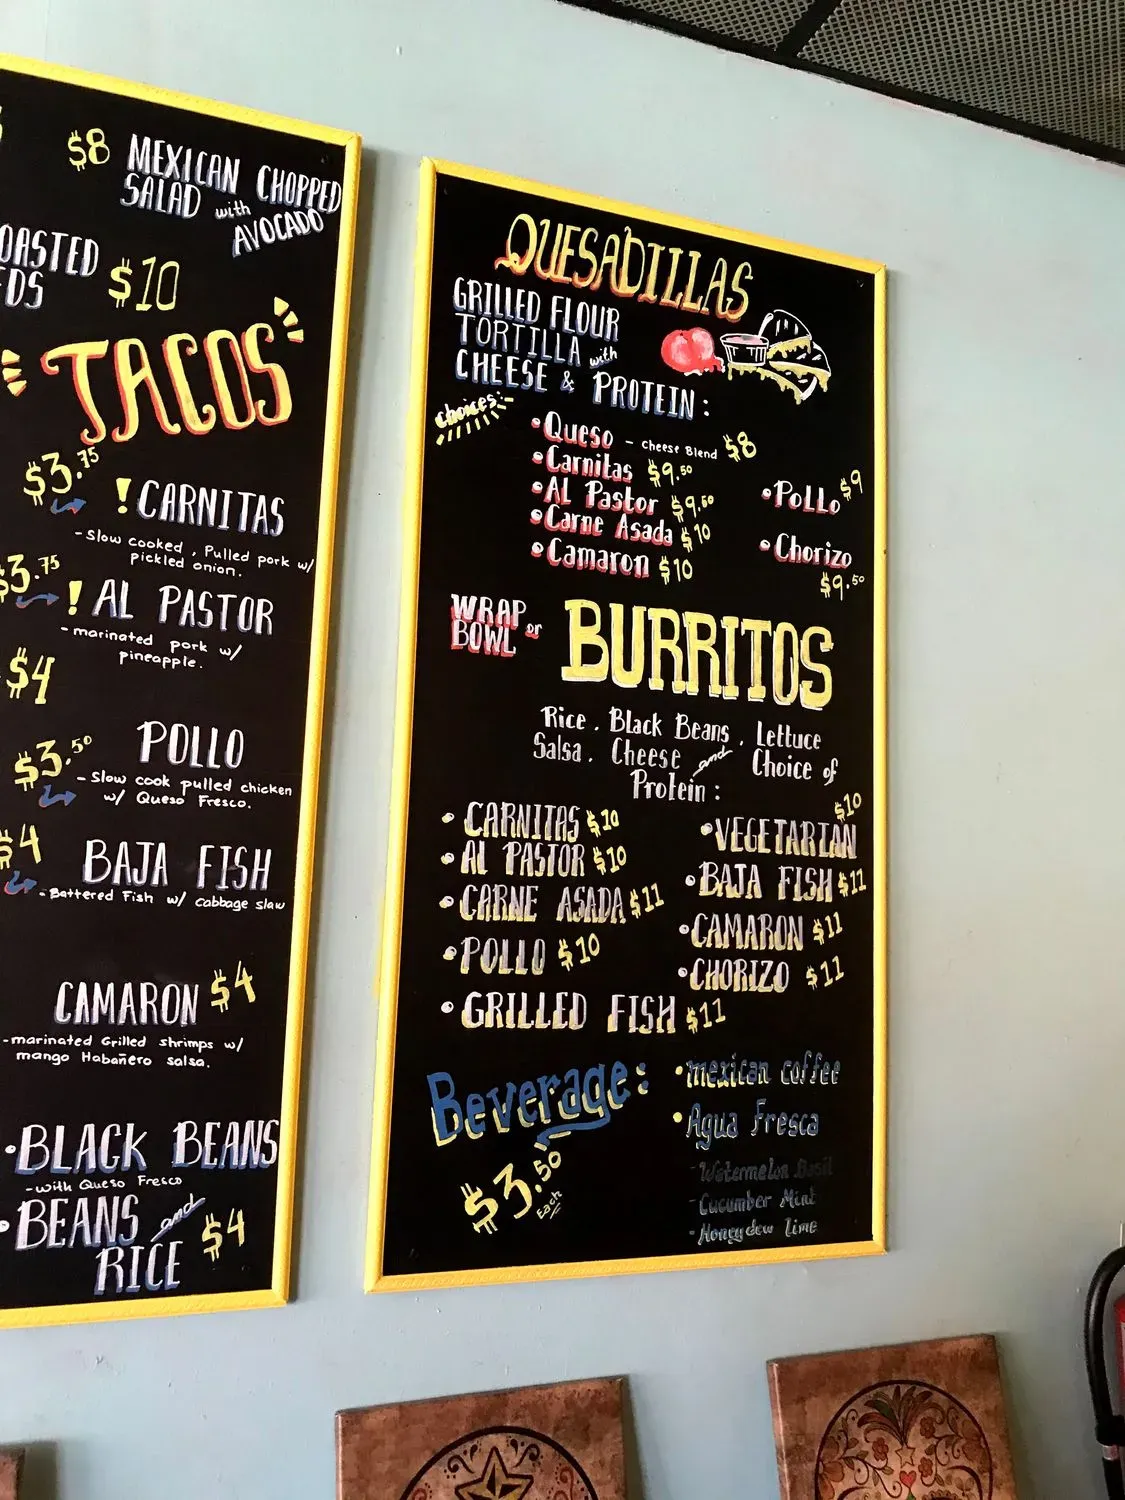 $8 MEXICAN CHOPPED
SALAD with
AVOCADO
$10
TACOS
$3.75
! CARNITAS
- Slow cooked, Pulled pork w/
pickled onion.
$3.75
! AL PASTOR
- marinated pork w/
pineapple.
$4
POLLO
$3.50
- Slow cook pulled chicken
w/ Queso Fresco.
$4
BAJA FISH
- Battered Fish w/ cabbage slaw
CAMARON $4
- marinated Grilled shrimps w/
mango Habañero salsa.
• BLACK BEANS
- with Queso Fresco
• BEANS and
RICE $4
QUESADILLAS
GRILLED FLOUR
TORTILLA with
CHEESE & PROTEIN:
Choices:-
• Queso - Cheese Blend $8
• Carnitas $9.50
• AL Pastor $9.50
• Carne Asada $10
• Camaron $10
• Pollo $9
• Chorizo
$9.50
WRAP or
BOWL
BURRITOS
Rice. Black Beans, Lettuce
Salsa. Cheese and Choice of
Protein:
• CARNITAS $10
• AL PASTOR $10
• CARNE ASADA $11
• POLLO $10
• GRILLED FISH $11
$10
• VEGETARIAN
• BAJA FISH $11
• CAMARON $11
• CHORIZO $11
Beverage:
$3.50
Each
• mexican coffee
• Agua Fresca
- Watermelon Basil
- Cucumber Mint
- Honeydew Lime